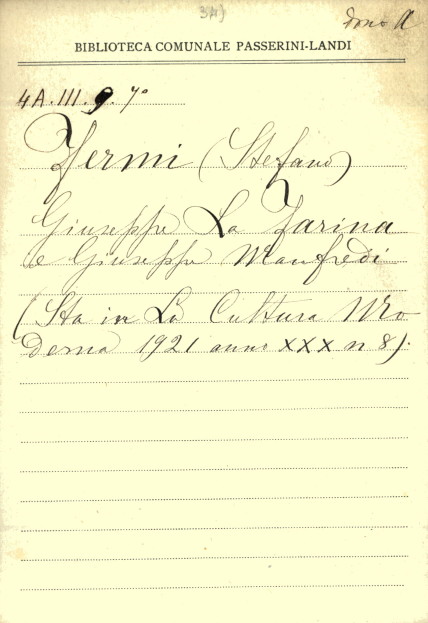 3A)
dono A
BIBLIOTECA COMUNALE PASSERINI-LANDI
4A.III.9.7°
Fermi (Stefano)
Giuseppe La Farina
e Giuseppe Manfredi
(Sta in La Cultura Mo
derna 1921 anno XXX n 8).